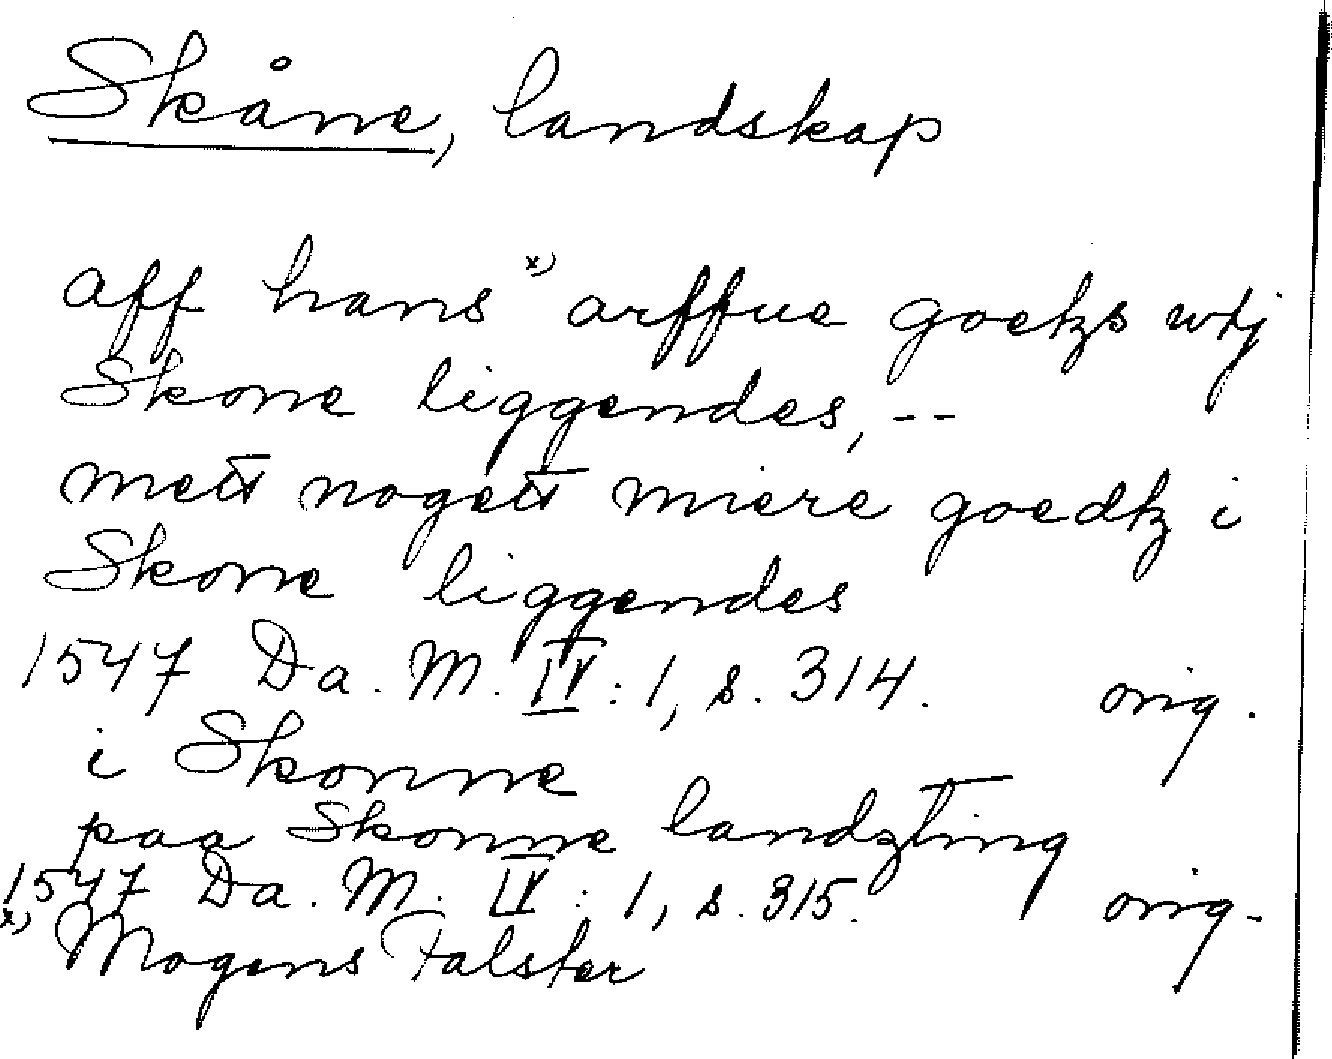 Skåne, landskap
aff hans x) arffue goetzs wtj
Skone liggendes, --
mett nogett miere goedtz i
Skone liggendes
1547 Da. M. IV: 1, s. 314. orig.
i Skonne
paa Skonne landzting
1547 Da. M. IV: 1, s. 315. orig.
x) Mogens Falster